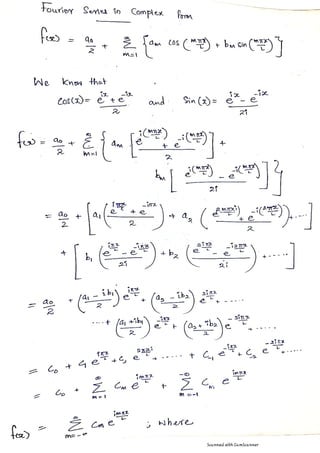 Fourier Series in Complex Form
f(x) = a0/2 + ∞ Σ m=1 { am cos (mπx/L) + bm sin (mπx/L) }
We know that
Cos(x) = e^ix + e^-ix / 2 and Sin(x) = e^ix - e^-ix / 2i
f(x) = a0/2 + ∞ Σ m=1 { am [ e^i(mπx/L) + e^-i(mπx/L) / 2 ] +
bm [ e^i(mπx/L) - e^-i(mπx/L) / 2i ] }
= a0/2 + [ a1 ( e^iπx/L + e^-iπx/L / 2 ) + a2 ( e^i(2πx/L) + e^-i(2πx/L) / 2 ) + ..... ]
+ [ b1 ( e^iπx/L - e^-iπx/L / 2i ) + b2 ( e^i2πx/L - e^-i2πx/L / 2i ) + ..... ]
= a0/2 + ( a1 - ib1 / 2 ) e^iπx/L + ( a2 - ib2 / 2 ) e^2iπx/L + .....
...+ ( a1 + ib1 / 2 ) e^-iπx/L + ( a2 + ib2 / 2 ) e^-2iπx/L + .....
= C0 + C1 e^iπx/L + C2 e^2πxi/L + ..... + C-1 e^-iπx/L + C-2 e^-2iπx/L + .....
= C0 + ∞ Σ m=1 Cm e^imπx/L + -∞ Σ m=-1 Cm e^imπx/L
f(x) = ∞ Σ m=-∞ Cm e^imπx/L ; where
Scanned with CamScanner